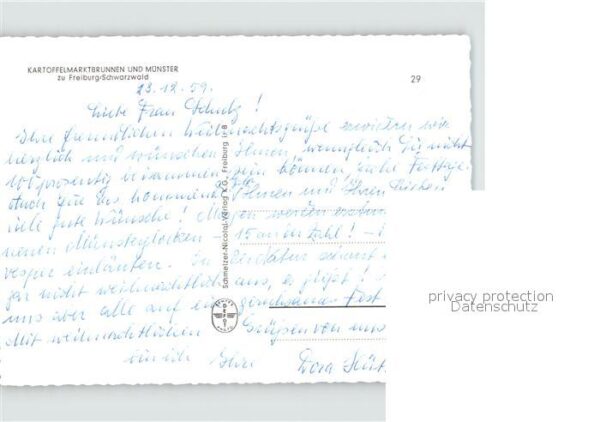 KARTOFFELMARKTBRUNNEN UND MÜNSTER
zu Freiburg/Schwarzwald
29
23.12.59.
Liebe Frau Schulz!
Ihre freundlichen Weihnachtsgrüße erwidern wir
herzlich und wünschen Ihnen, wenngleich Sie nicht
beisammen sein können, frohe Festtage.
Auch für das kommende Jahr Ihnen und Ihren Lieben
viele gute Wünsche! Morgen werden erstmals
neuen Münsterglocken - 15 an der Zahl! -
vesper einläuten. In
gar nicht weihnachtlich aus, es gießt!
uns aber alle auf ein Fest
Mit weihnachtlichen Grüßen von uns
bin ich Ihre Dora
Schmelzer-Nicolai-Verlag KG., Freiburg i. B
privacy protection
Datenschutz